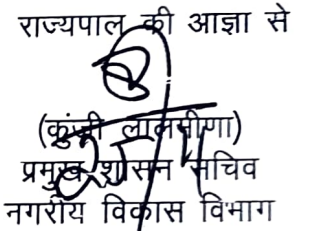 राज्यपाल की आज्ञा से
(कुंजी लालमीणा)
प्रमुख शासन सचिव
नगरीय विकास विभाग